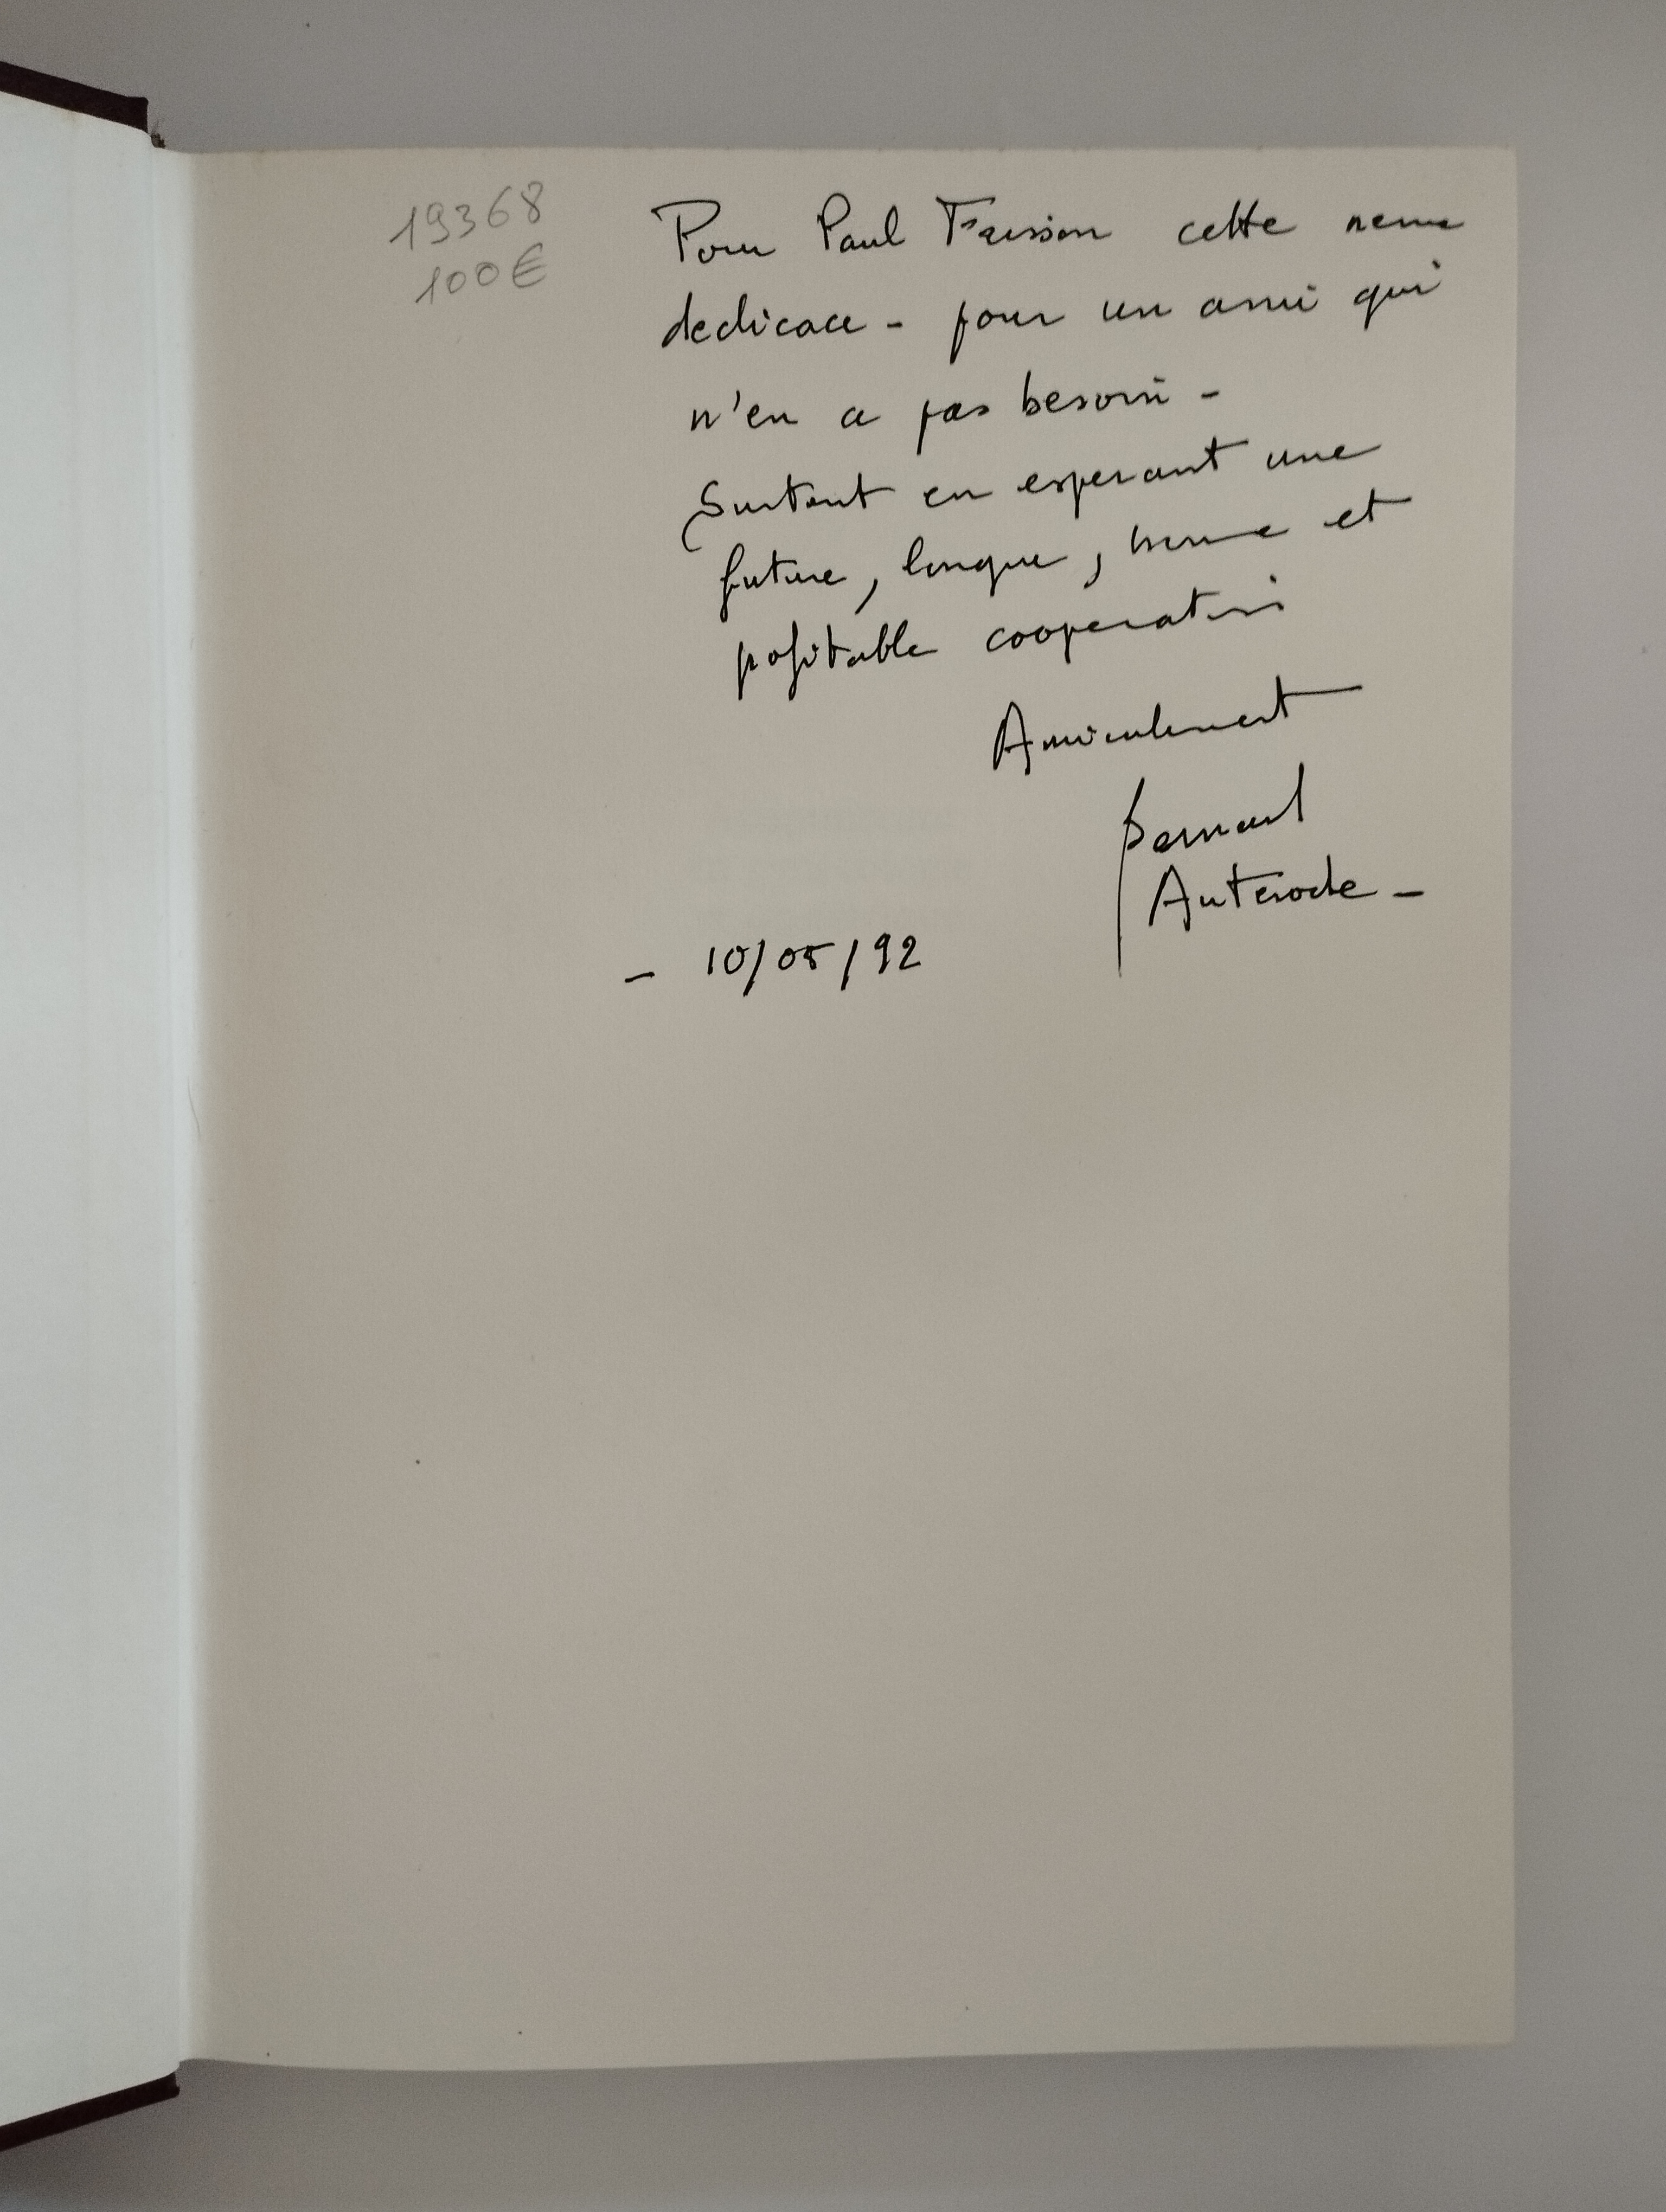 19368
100€
Pour Paul cette
dedicace - pour un ami qui
n'en a pas besoin -
Surtout en esperant une
future, longue, bonne et
profitable cooperation
Amicalement
Bernard
Auteroche -
- 10/05/92